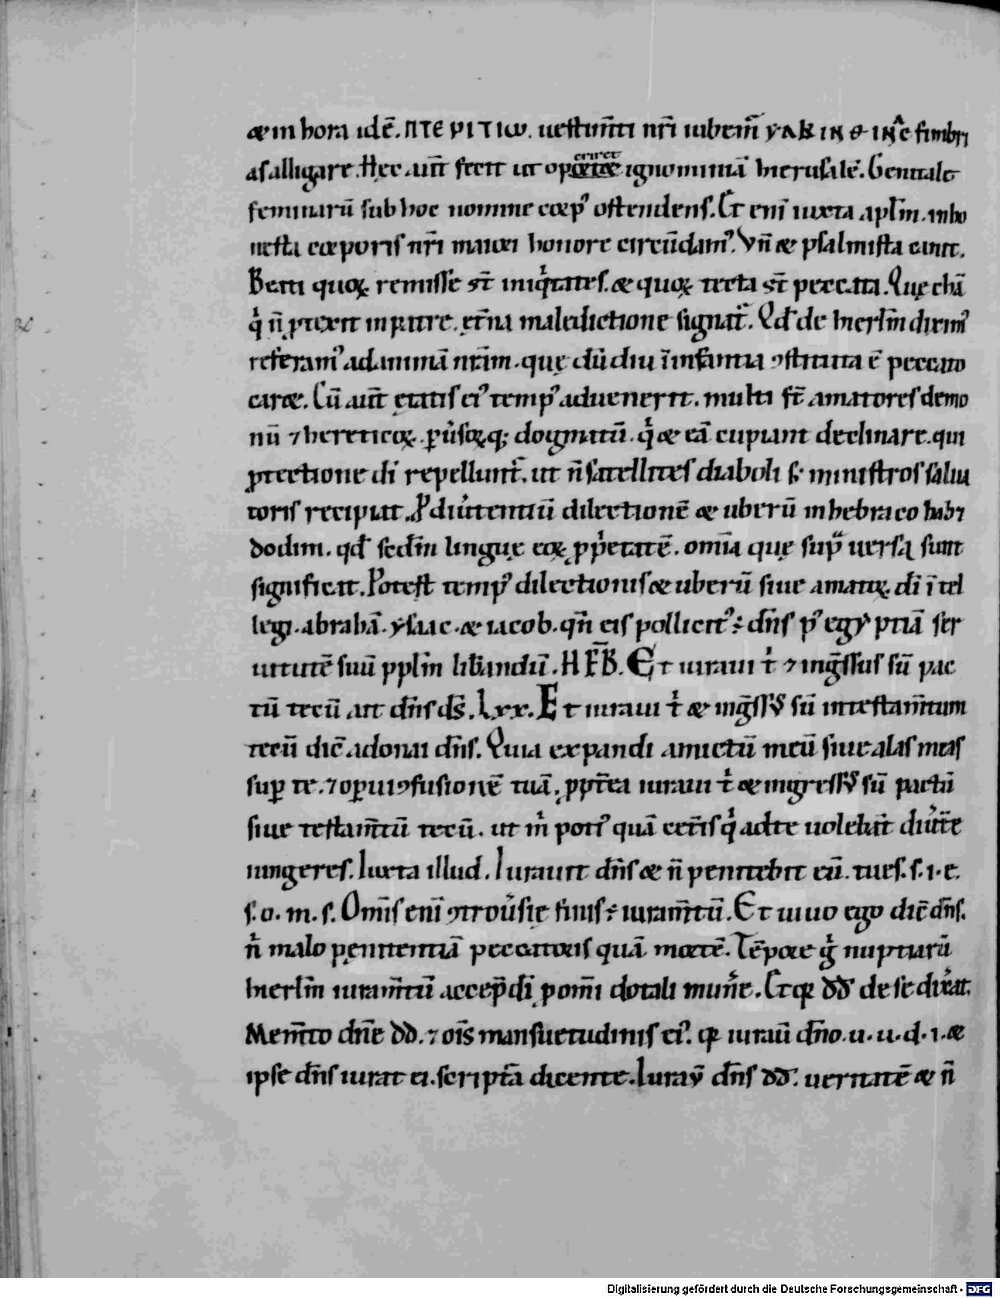 & in hora idē. ΠΤΕ ΡΙΤΙω. uestim̄ti nr̄i iubem̄ fimbri
as alligare. Hęc aut̄ fecit ut ignominiā hierusalē. Genitale
feminarū sub hoc nomine ostendens. Et eni iuxta apl̄m. inho
nesta corporis nr̄i maiori honore circūdamꝰ. Vn̄ & psalmista canit.
Beati quoꝝ remisse st̄ iniqͥtates. & quoꝝ tecta st̄ peccata. Quę
qͥ n̄ ꝓtexit inpatre. ęt̄na maledictione signat᷑. Qd̄ de hierl̄m diximꝰ
referamꝰ ad animā nrām. quę dū diu ī infantia ꝯstituta ē peccato
caret. Cū aut̄ ętatis eiꝰ tempꝰ aduenerit. multi st̄ amatores demo
nū ⁊ hereticoꝝ. ꝑuͥsoꝝq; dogmatū. qͥ & eā cupiunt declinare. qui
ꝓtectione di repellunt᷑. ut n̄ satellites diaboli s; ministros salua
toris recipiat. Pͦ diuͥtentiū dilectionē & uberū in hebraeo
dodim. qd̄ scdm̄ linguę eoꝝ ꝓp̄etatē. omīa quę supͣ uersa sunt
significat. Potest tempꝰ dilectionis & uberū siue amatoꝝ. di ītel
legi. abrahā. ysaac. & iacob. qn̄ eis pollicitꝰ ē dn̄s pꝰ egyptiā ser
uitutē suū ppl̄m lib̄andū. Et iuraui tͥ ⁊ ingͣssus sū pac
tū tecū ait dn̄s ds̄. Lxx. Et iuraui tͥ & ingͣssꝰ sū in testam̄tum
tecū dic̄ adonai dn̄s. Quia expandi amictū meū siue alas meas
suꝑ te. ⁊ operui ꝯfusionē tuā. ꝓpt̄ea iuraui tͥ & ingressꝰ sū pactū
siue testam̄tū tecū. ut mͥ potiꝰ quā cet̄is qͥ adte uolebāt diuͥt̄e
iungeres. Iuxta illud. Iurauit dn̄s & n̄ penitebit eū. tues. s. i. e.
s. o. m. s. Om̄is eni ꝯtrouͥsię finis ē iuram̄tū. Et uiuo ego dic̄ dn̄s.
n̄ malo penitentiā peccatoris quā mortē. Tēpore gͥ nuptiarū
hierl̄m iuram̄tū accep̄ di pom̄i dotali munͤe. Etqͥ dd̄ de se dixͤat.
Mem̄to dn̄e dd̄. ⁊ ois̄ mansuetudinis eiꝰ. qͥ iurauͭ dn̄o. u. u. d. i. &
ipse dn̄s iurat ei. scriptͣa dicente. Iurauͭ dn̄s dd̄. ueritatē & n̄
Digitalisierung gefördert durch die Deutsche Forschungsgemeinschaft - DFG